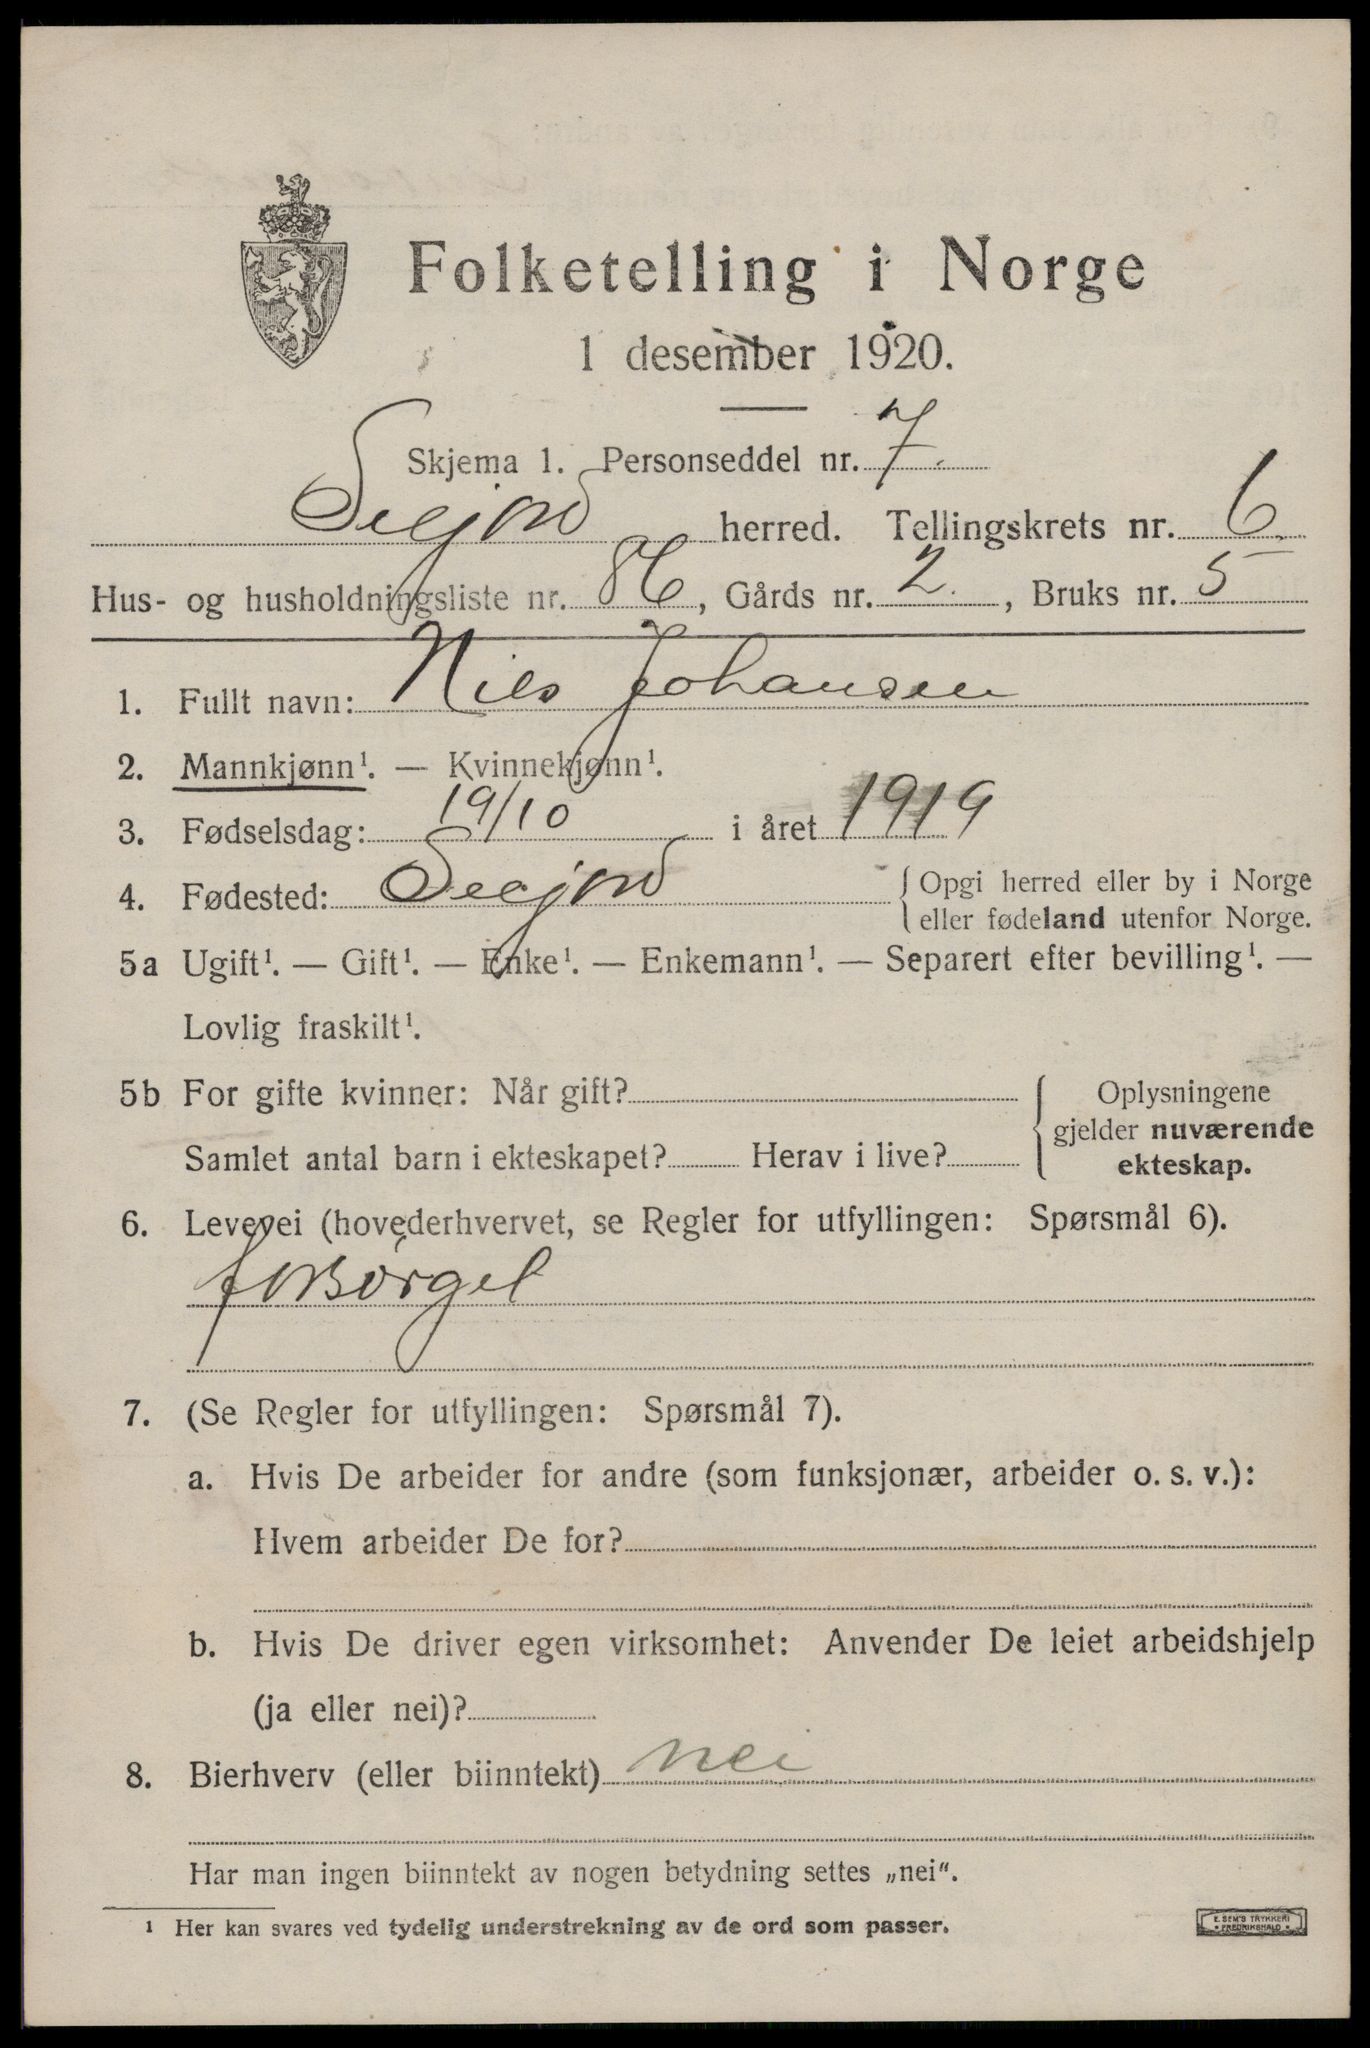 Folketelling i Norge
1 desember 1920.
Skjema 1. Personseddel nr. 7.
herred. Tellingskrets nr. 6.
Hus- og husholdningsliste nr. 86, Gårds nr. 2., Bruks nr. 5
1. Fullt navn: Nils Johansen
2. Mannkjønn¹. — Kvinnekjønn¹.
3. Fødselsdag: 19/10 i året 1919
4. Fødested: { Opgi herred eller by i Norge
eller fødeland utenfor Norge.
5a Ugift¹. — Gift¹. — Enke¹. — Enkemann¹. — Separert efter bevilling¹. —
Lovlig fraskilt¹.
5b For gifte kvinner: Når gift? { Oplysningene
gjelder nuværende
Samlet antal barn i ekteskapet? Herav i live? ekteskap.
6. Levevei (hovederhvervet, se Regler for utfyllingen: Spørsmål 6).
forsørget
7. (Se Regler for utfyllingen: Spørsmål 7).
a. Hvis De arbeider for andre (som funksjonær, arbeider o. s. v.):
Hvem arbeider De for?
b. Hvis De driver egen virksomhet: Anvender De leiet arbeidshjelp
(ja eller nei)?
8. Bierhverv (eller biinntekt) nei
Har man ingen biinntekt av nogen betydning settes „nei“.
¹ Her kan svares ved tydelig understrekning av de ord som passer.
E. SEM'S TRYKKERI
FREDRIKSHALD